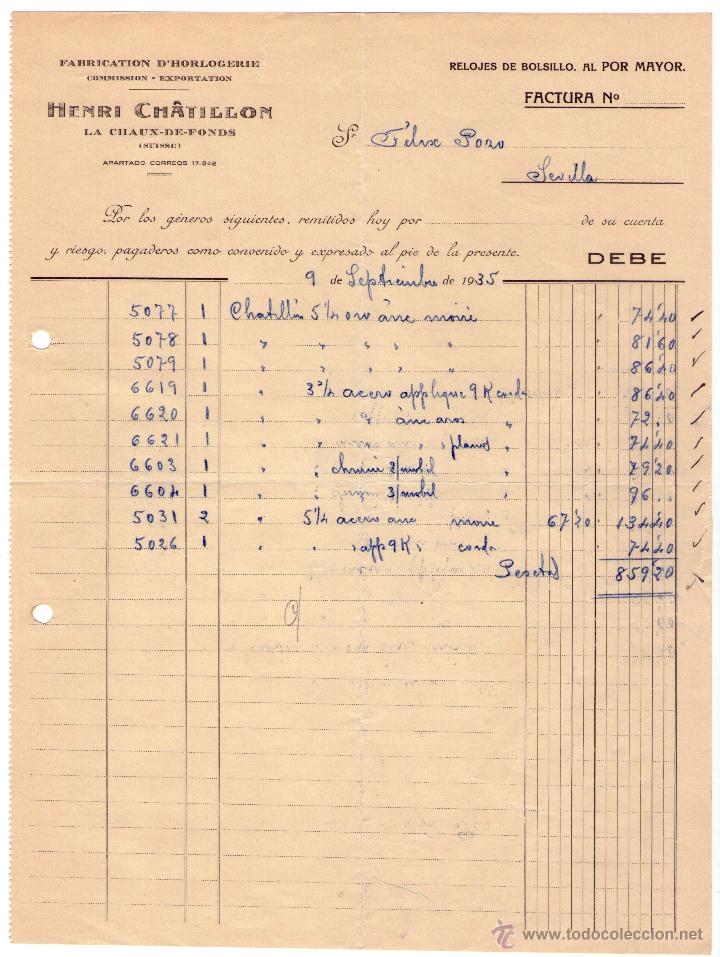 FABRICATION D'HORLOGERIE
COMMISSION - EXPORTATION
HENRI CHÂTILLON
LA CHAUX-DE-FONDS
(SUISSE)
APARTADO CORREOS 17.842
RELOJES DE BOLSILLO. AL POR MAYOR.
FACTURA Nº
Sr. Félix Pozo
Sevilla
Por los géneros siguientes, remitidos hoy por de su cuenta
y riesgo, pagaderos como convenido y expresado al pie de la presente.
DEBE
9 de Septiembre de 1935
5077 1 Chatillón 5¼ oro ânc moiré 74'40
5078 1 " " " " " 81'60
5079 1 " " " " " 86'40
6619 1 " 3¾ acero applique 9K 86'40
6620 1 " " " ânc aros " 72..
6621 1 " " " " planos " 74'40
6603 1 " " 2/mobil " 79'20
6604 1 " " 3/mobil " 96..
5031 2 " 5¼ acero anc moire 67'20 134'40
5026 1 " " " app 9K " 74'40
Pesetas 859'20
© www.todocoleccion.net